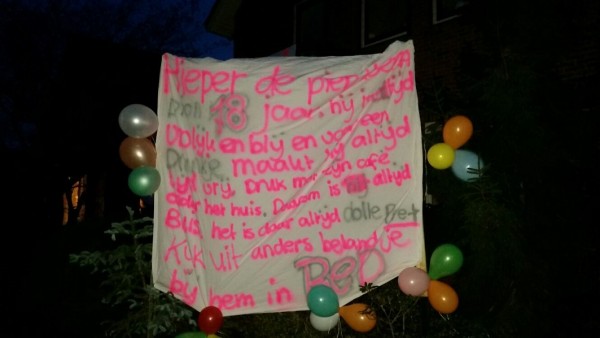 Hieper de piep
18 jaar, hij is altijd
Vrolijk en blij en voor een
maakt hij altijd
tijd vrij. Druk met zijn café
het huis. Daarom is hij altijd
Bus het is daar altijd dolle Pret
Kijk uit anders beland je
bij hem in BED